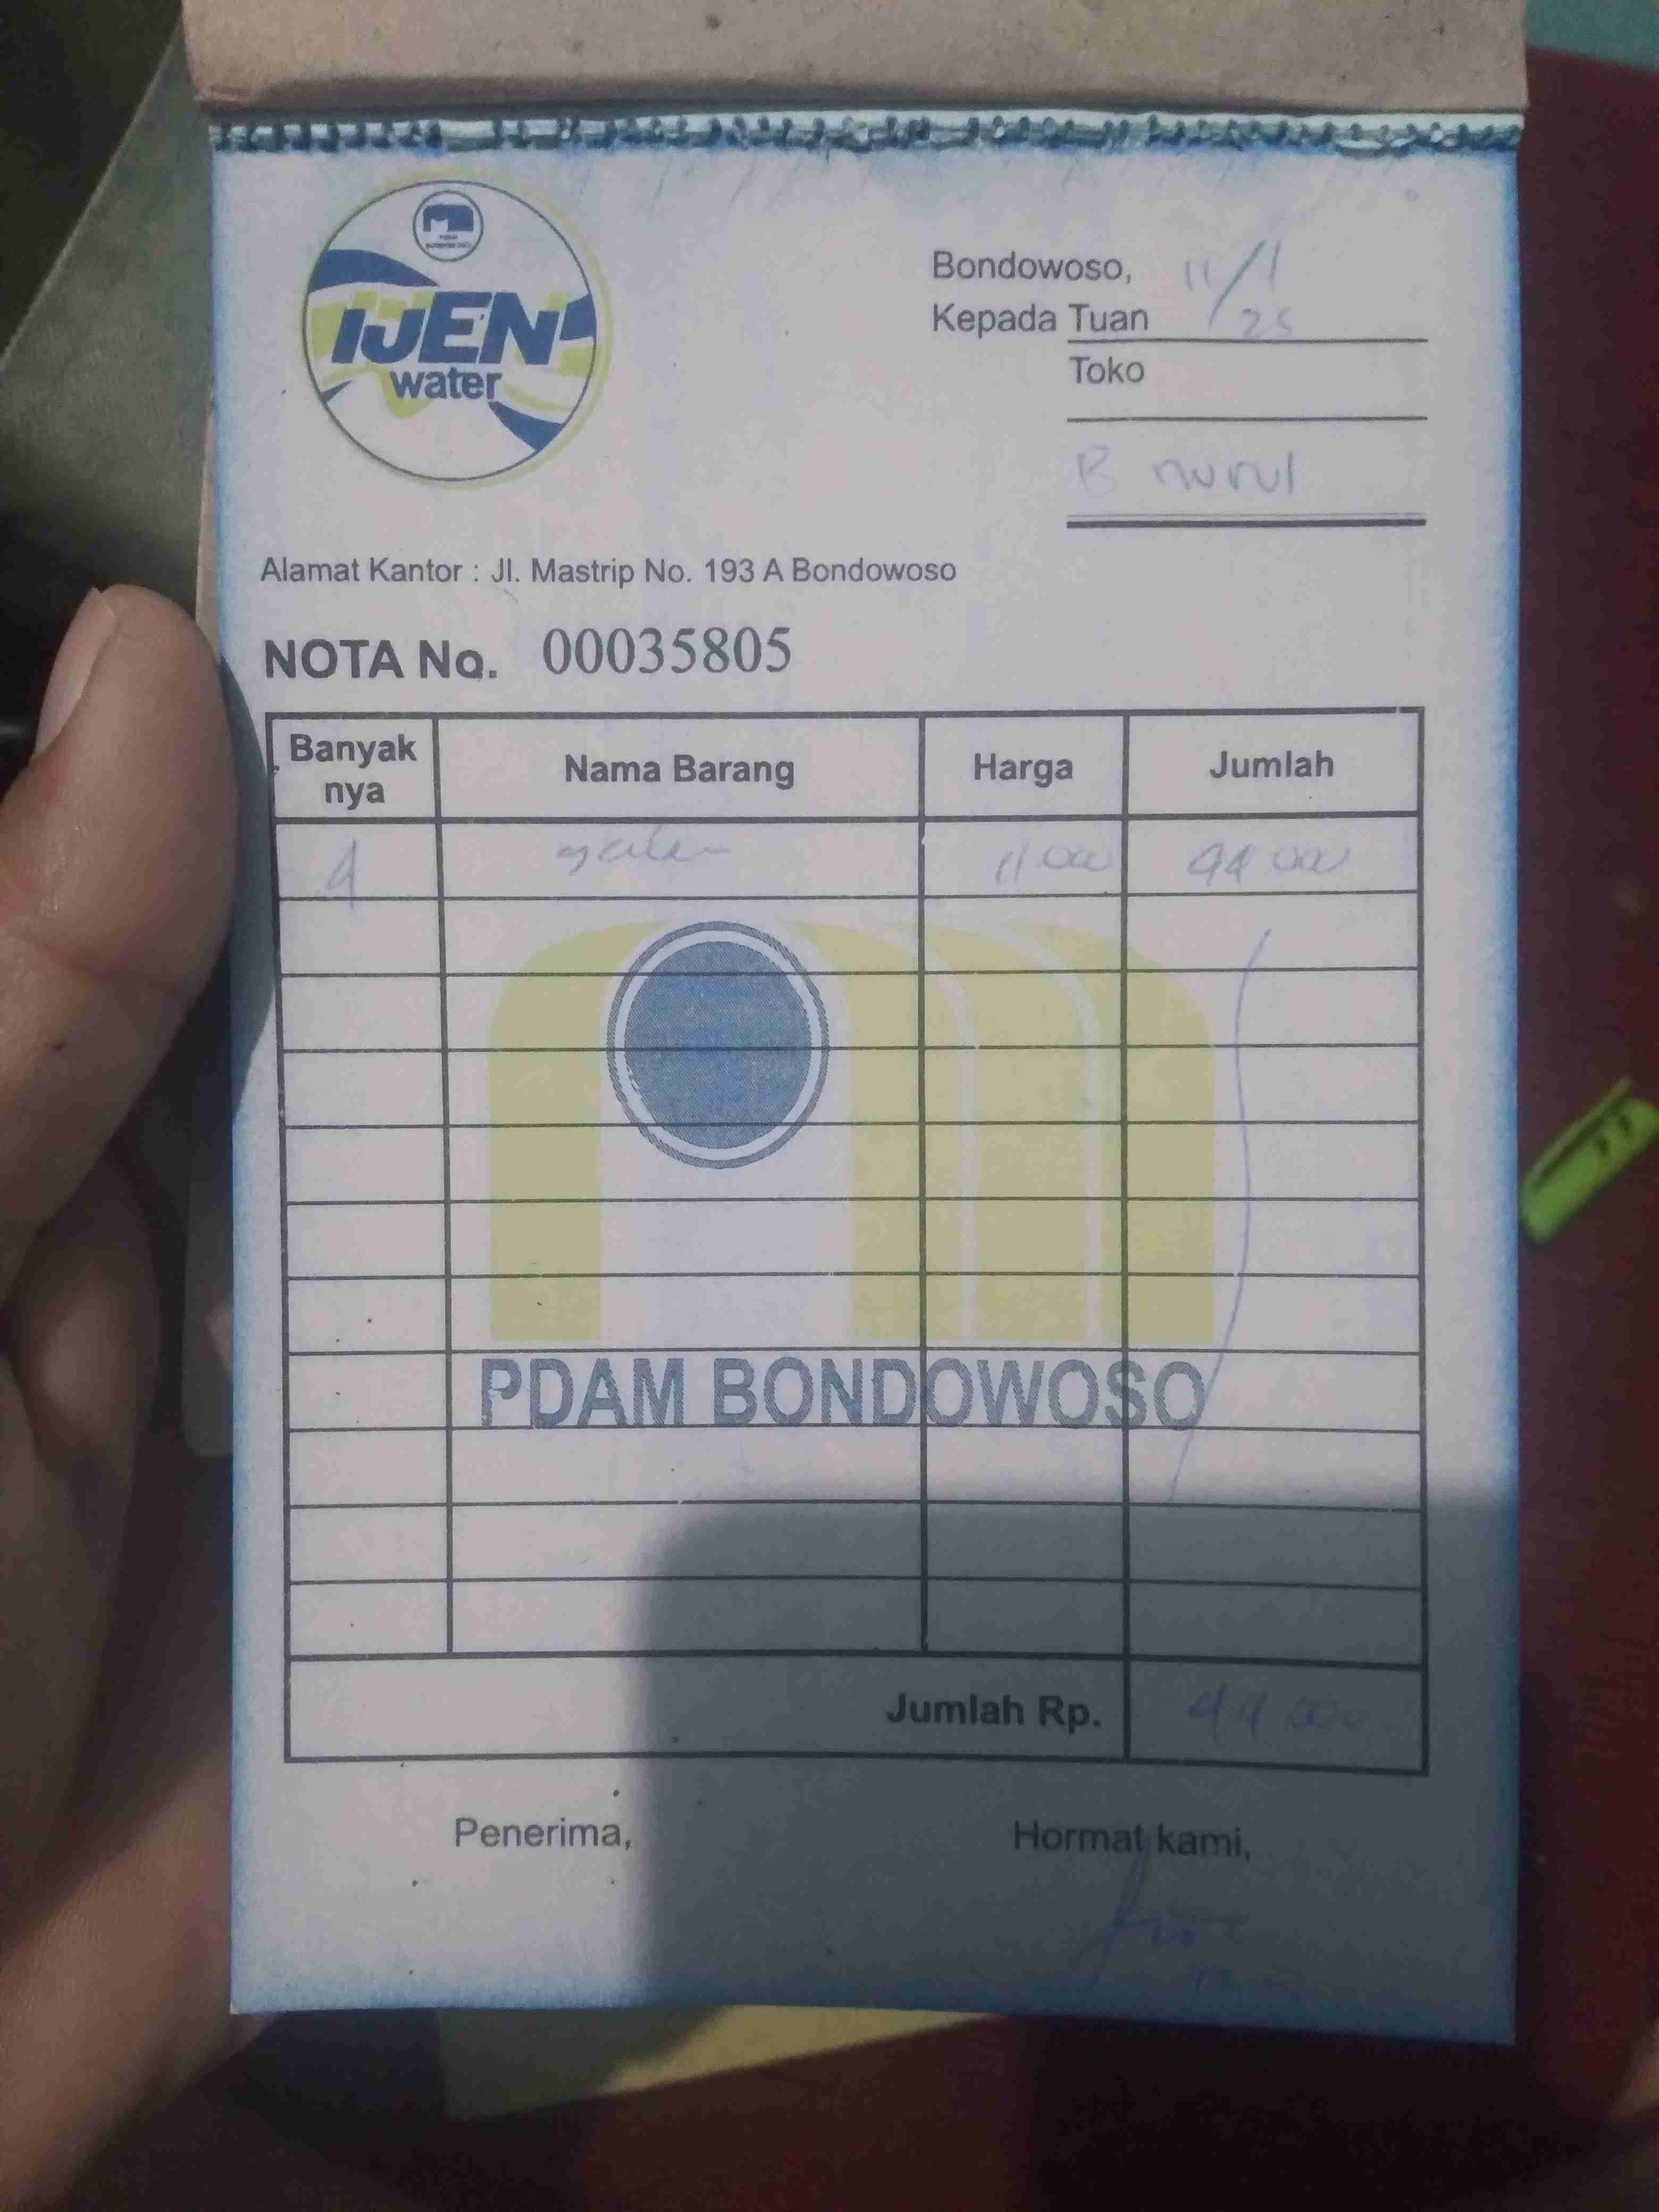 IJEN
water
Bondowoso, 11/1
Kepada Tuan 25
Toko
B nurul
Alamat Kantor : Jl. Mastrip No. 193 A Bondowoso
NOTA No. 00035805
Banyak nya Nama Barang Harga Jumlah
4 galon 11 000 44 000
PDAM BONDOWOSO
Jumlah Rp. 44 000
Penerima, Hormat kami,